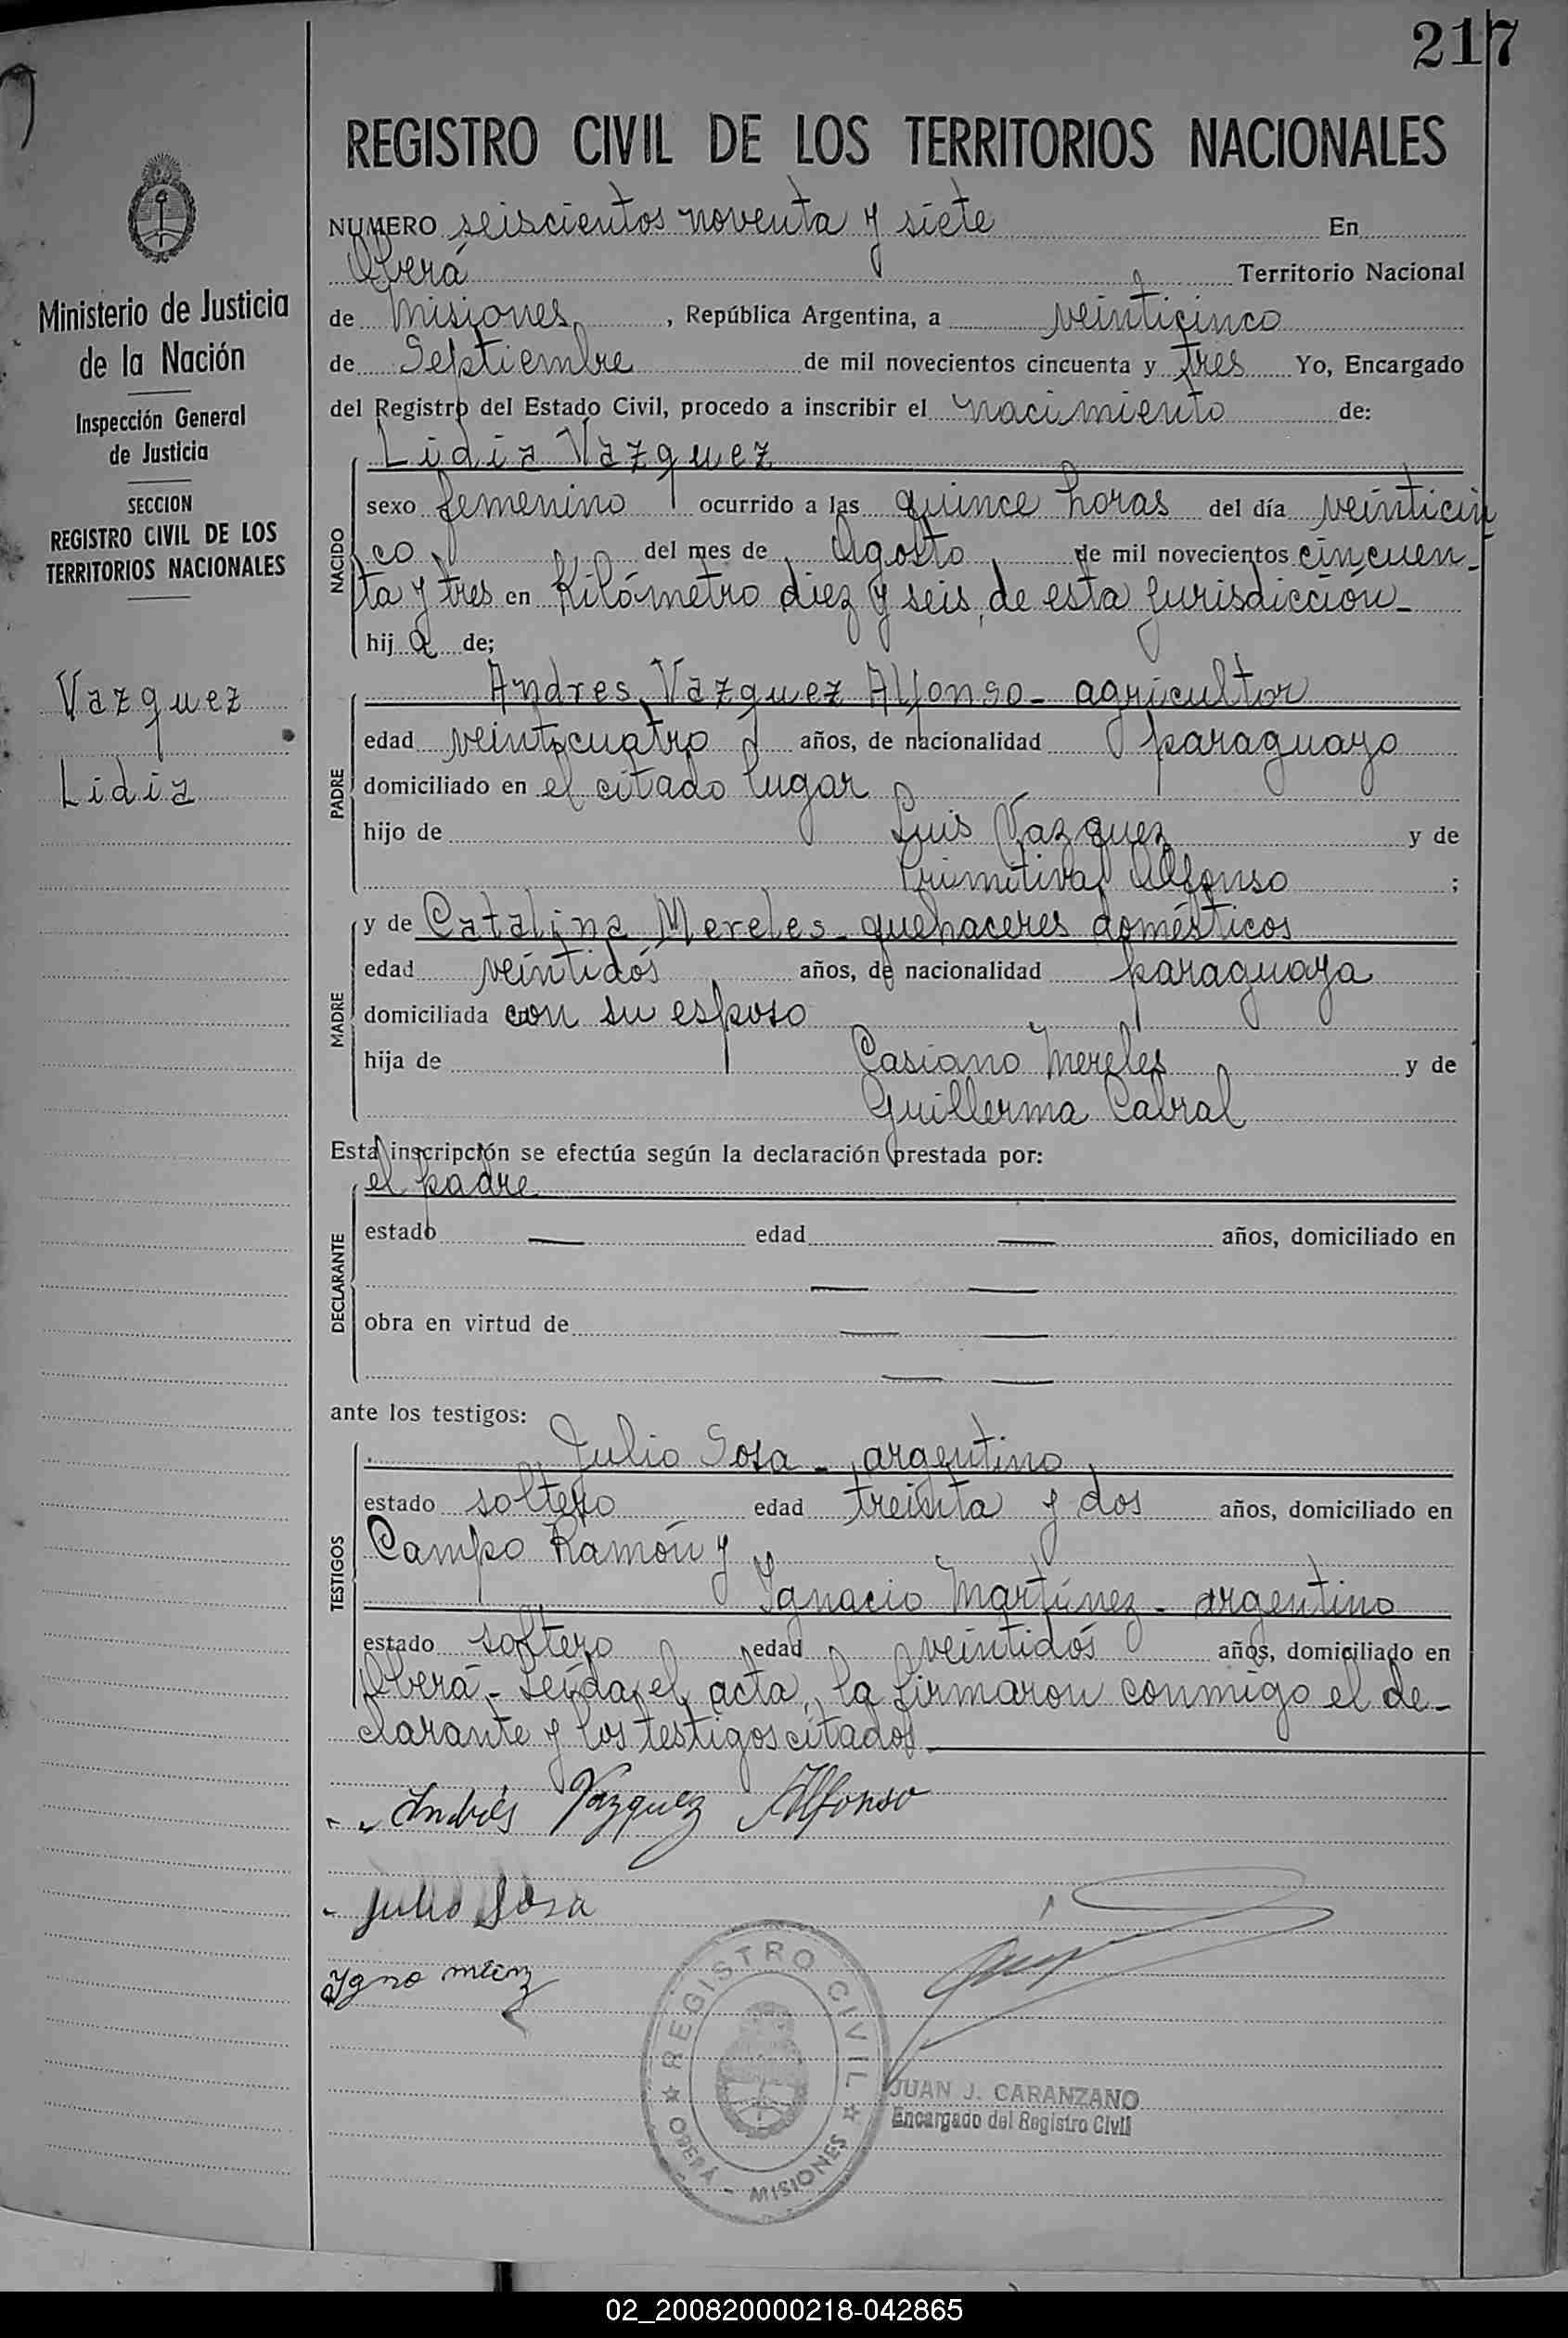 217
REGISTRO CIVIL DE LOS TERRITORIOS NACIONALES
Ministerio de Justicia
de la Nación
Inspección General
de Justicia
SECCION
REGISTRO CIVIL DE LOS
TERRITORIOS NACIONALES
Vazquez
Lidia
NUMERO seiscientos noventa y siete En
Oberá Territorio Nacional
de Misiones, República Argentina, a veinticinco
de Septiembre de mil novecientos cincuenta y tres Yo, Encargado
del Registro del Estado Civil, procedo a inscribir el nacimiento de:
NACIDO
Lidia Vazquez
sexo femenino ocurrido a las quince horas del día veinticin
co del mes de Agosto de mil novecientos cincuen-
ta y tres en Kilómetro diez y seis, de esta Jurisdicción-
hija de;
PADRE
Andres Vazquez Alfonso- agricultor
edad veinticuatro años, de nacionalidad paraguayo
domiciliado en el citado lugar
hijo de Luis Vazquez y de
Primitiva Alfonso ;
MADRE
y de Catalina Mereles- quehaceres domésticos
edad veintidós años, de nacionalidad paraguaya
domiciliada con su esposo
hija de Casiano Mereles y de
Guillerma Cabral
Esta inscripción se efectúa según la declaración prestada por:
DECLARANTE
el padre
estado — edad — años, domiciliado en
— —
obra en virtud de — —
— —
ante los testigos:
TESTIGOS
Julio Sosa- argentino
estado soltero edad treinta y dos años, domiciliado en
Campo Ramón y
Ignacio Martínez- argentino
estado soltero edad veintidós años, domiciliado en
Oberá.- Leída el acta, la firmaron conmigo el de-
clarante y los testigos citados
Andrés Vazquez Alfonso
Julio Sosa
Igno
REGISTRO CIVIL
OBERÁ - MISIONES
JUAN J. CARANZANO
Encargado del Registro Civil
02_200820000218-042865